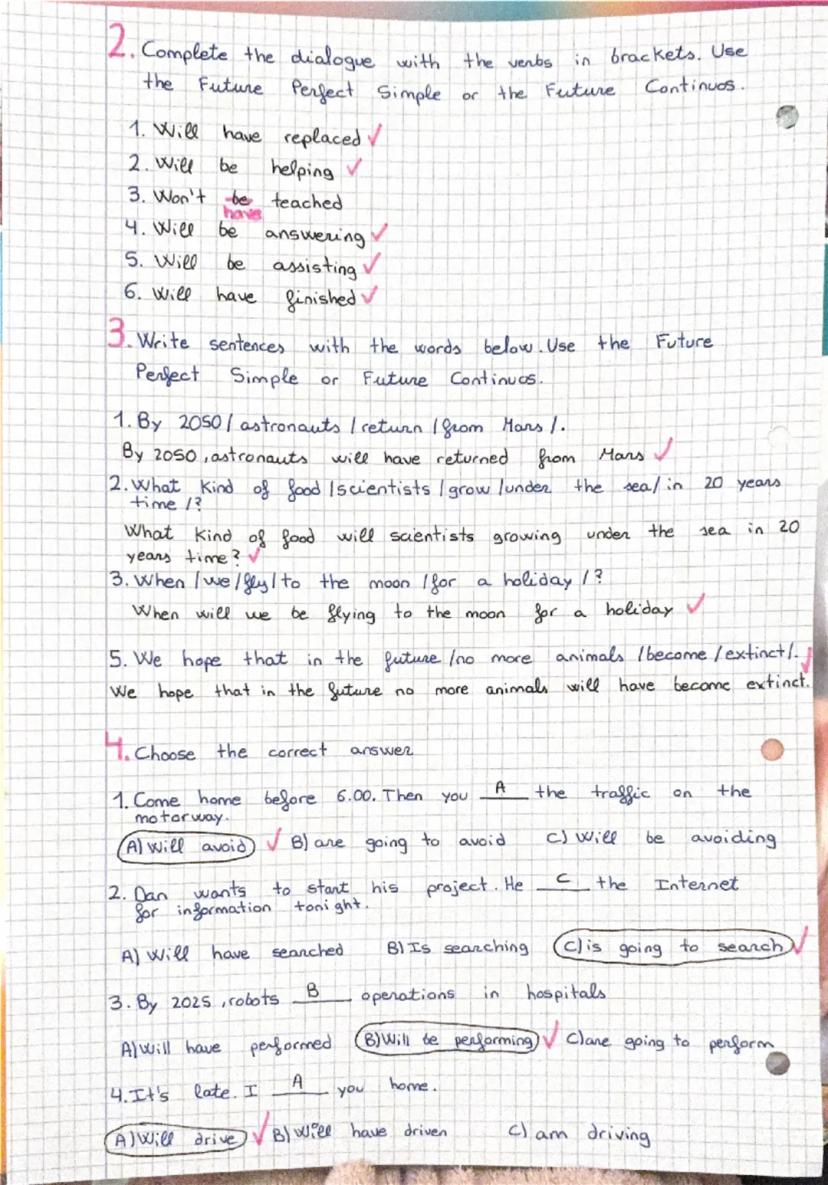 2. Complete the dialogue with the verbs in brackets. Use
the Future Perfect Simple or the Future Continuos.
1. Will have replaced ✓
2. Will be helping ✓
3. Won't be teached
have
4. Will be answering ✓
5. Will be assisting ✓
6. Will have finished ✓
3. Write sentences with the words below. Use the Future
Perfect Simple or Future Continuos.
1. By 2050 / astronauts / return / from Mars /.
By 2050, astronauts will have returned from Mars ✓
2. What kind of food / scientists / grow / under the sea / in 20 years
time /?
What kind of food will scientists growing under the sea in 20
years time? ✓
3. When / we / fly / to the moon / for a holiday / ?
When will we be flying to the moon for a holiday ✓
5. We hope that in the future / no more animals / become / extinct /. ✓
We hope that in the future no more animals will have become extinct.
4. Choose the correct answer
1. Come home before 6.00. Then you A the traffic on the
motorway.
A) Will avoid ✓ B) are going to avoid C) Will be avoiding
2. Dan wants to start his project. He C the Internet
for information tonight.
A) Will have searched B) Is searching C) is going to search ✓
3. By 2025, robots B operations in hospitals
A) Will have performed B) Will be performing ✓ C) are going to perform
4. It's late. I A you home.
A) Will drive ✓ B) Will have driven C) am driving